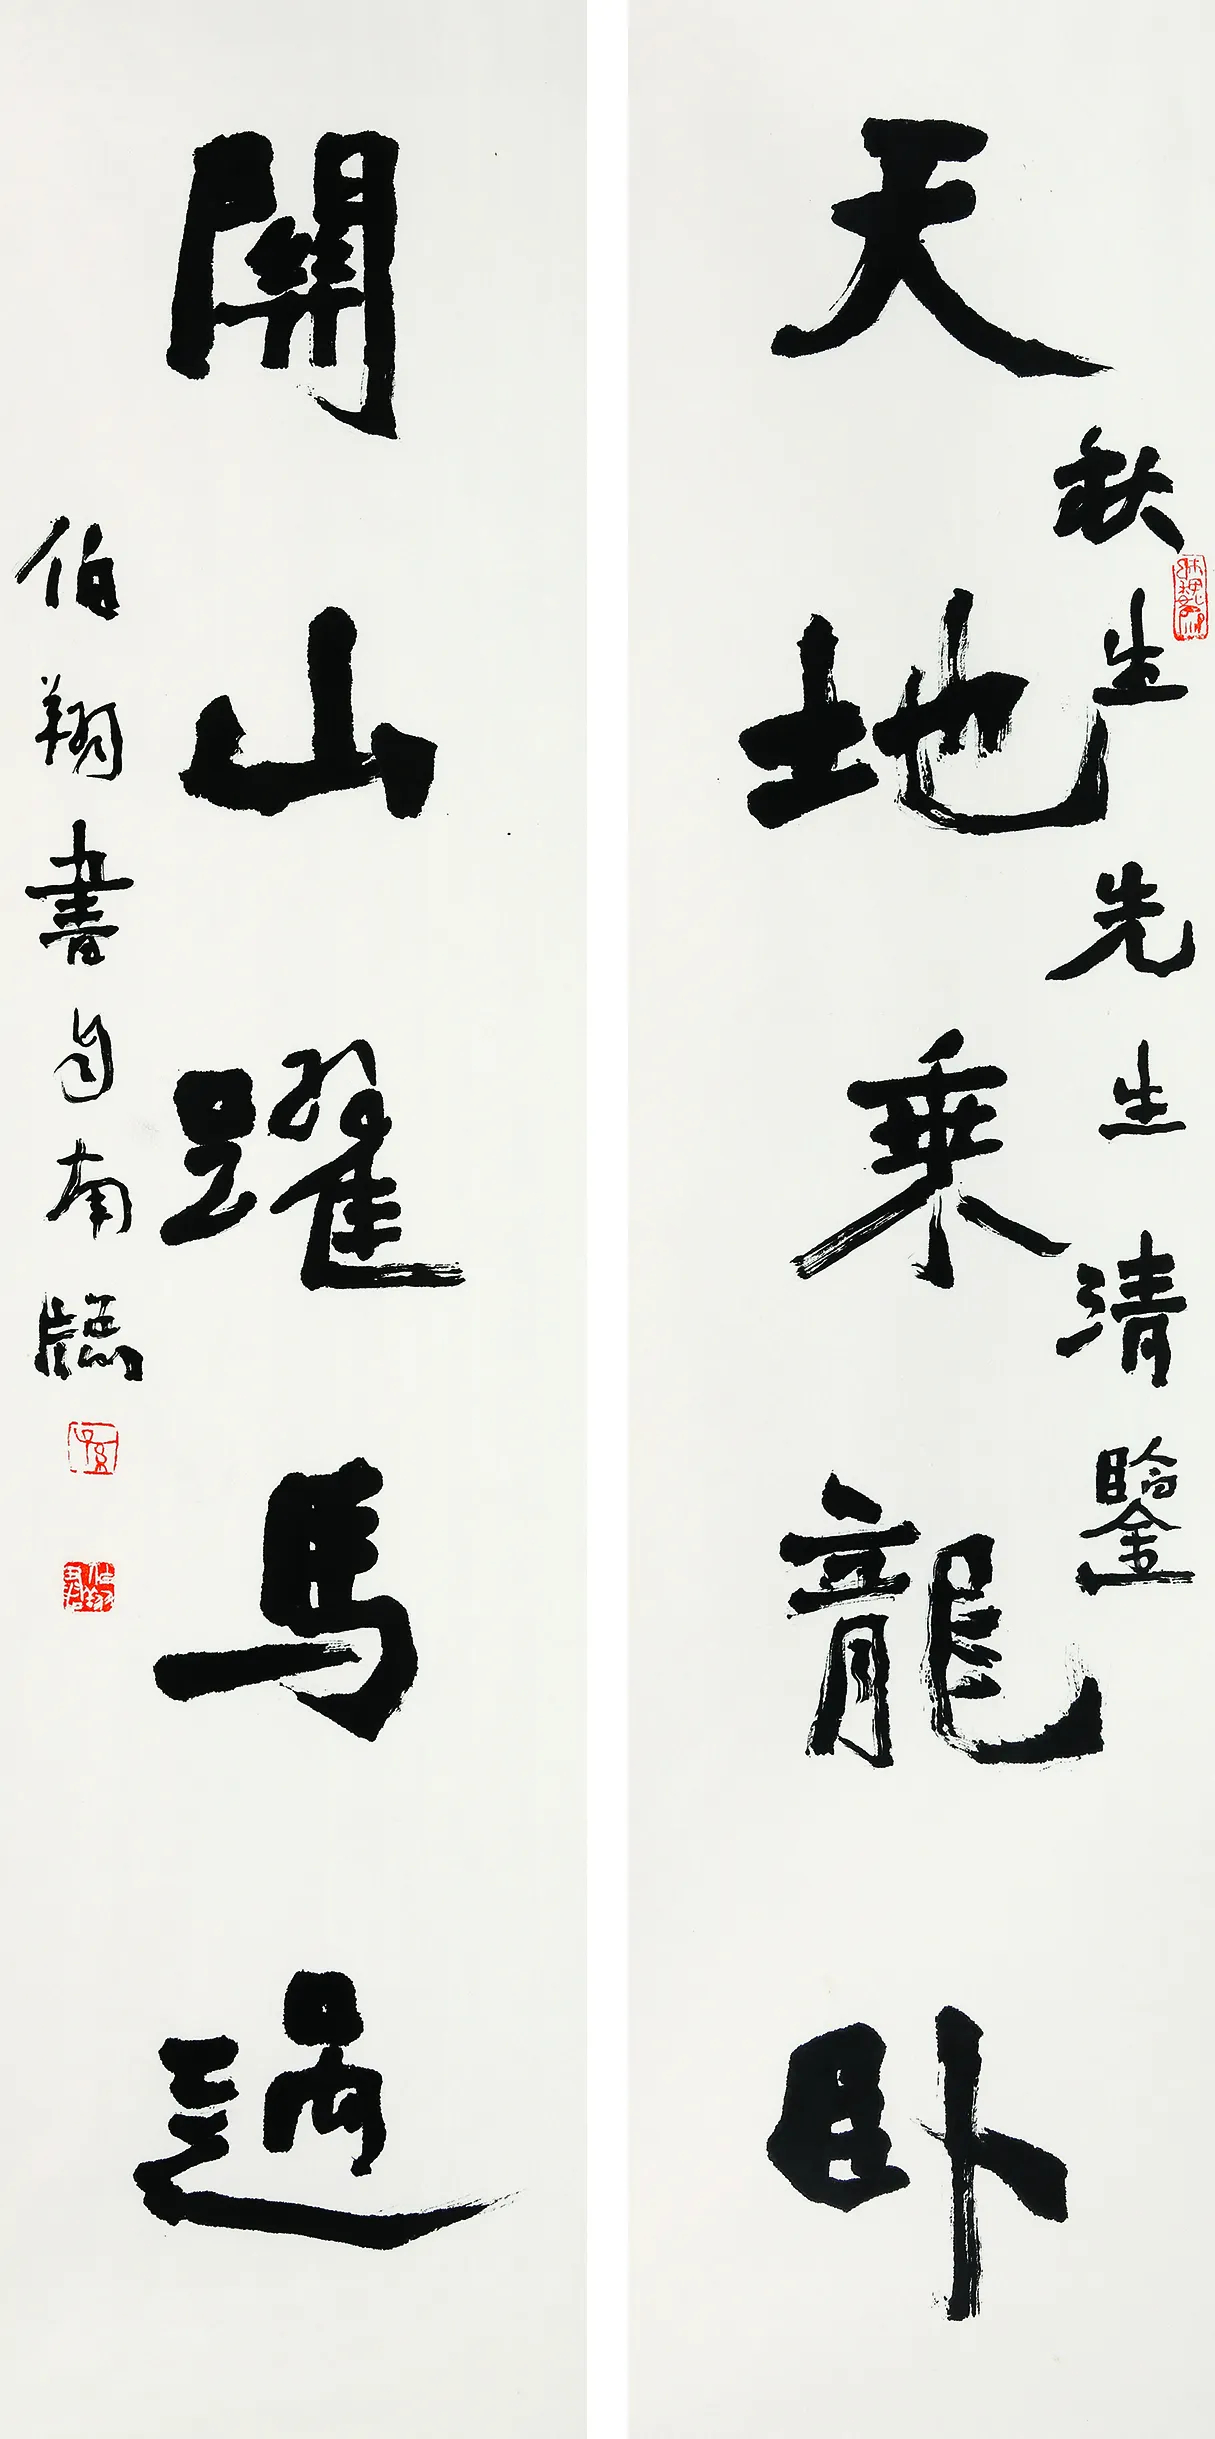 天地乘龍卧
秋生先生清鑒
關山躍馬過
伯翔書自南牕